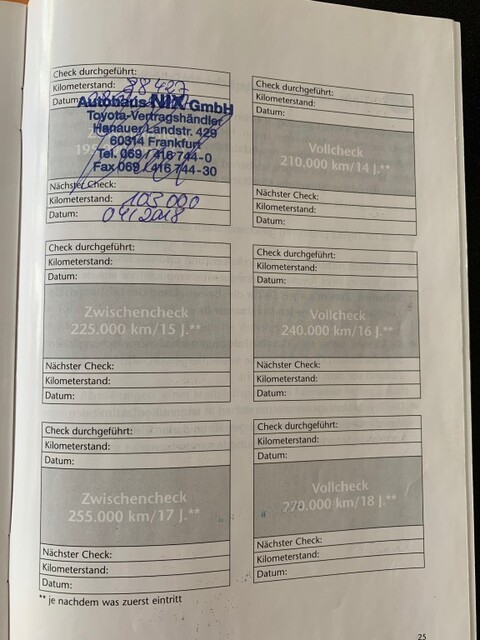 Check durchgeführt:
Kilometerstand: 88427
Datum:
Autohaus NIX GmbH
Toyota-Vertragshändler
Hanauer Landstr. 429
60314 Frankfurt
Tel. 069 / 416 744-0
Fax 069 / 416 744-30
Nächster Check:
Kilometerstand: 103 000
Datum: 04/2018
Check durchgeführt:
Kilometerstand:
Datum:
Vollcheck
210.000 km/14 J.**
Nächster Check:
Kilometerstand:
Datum:
Check durchgeführt:
Kilometerstand:
Datum:
Zwischencheck
225.000 km/15 J.**
Nächster Check:
Kilometerstand:
Datum:
Check durchgeführt:
Kilometerstand:
Datum:
Vollcheck
240.000 km/16 J.**
Nächster Check:
Kilometerstand:
Datum:
Check durchgeführt:
Kilometerstand:
Datum:
Zwischencheck
255.000 km/17 J.**
Nächster Check:
Kilometerstand:
Datum:
Check durchgeführt:
Kilometerstand:
Datum:
Vollcheck
270.000 km/18 J.**
Nächster Check:
Kilometerstand:
Datum:
** je nachdem was zuerst eintritt
25